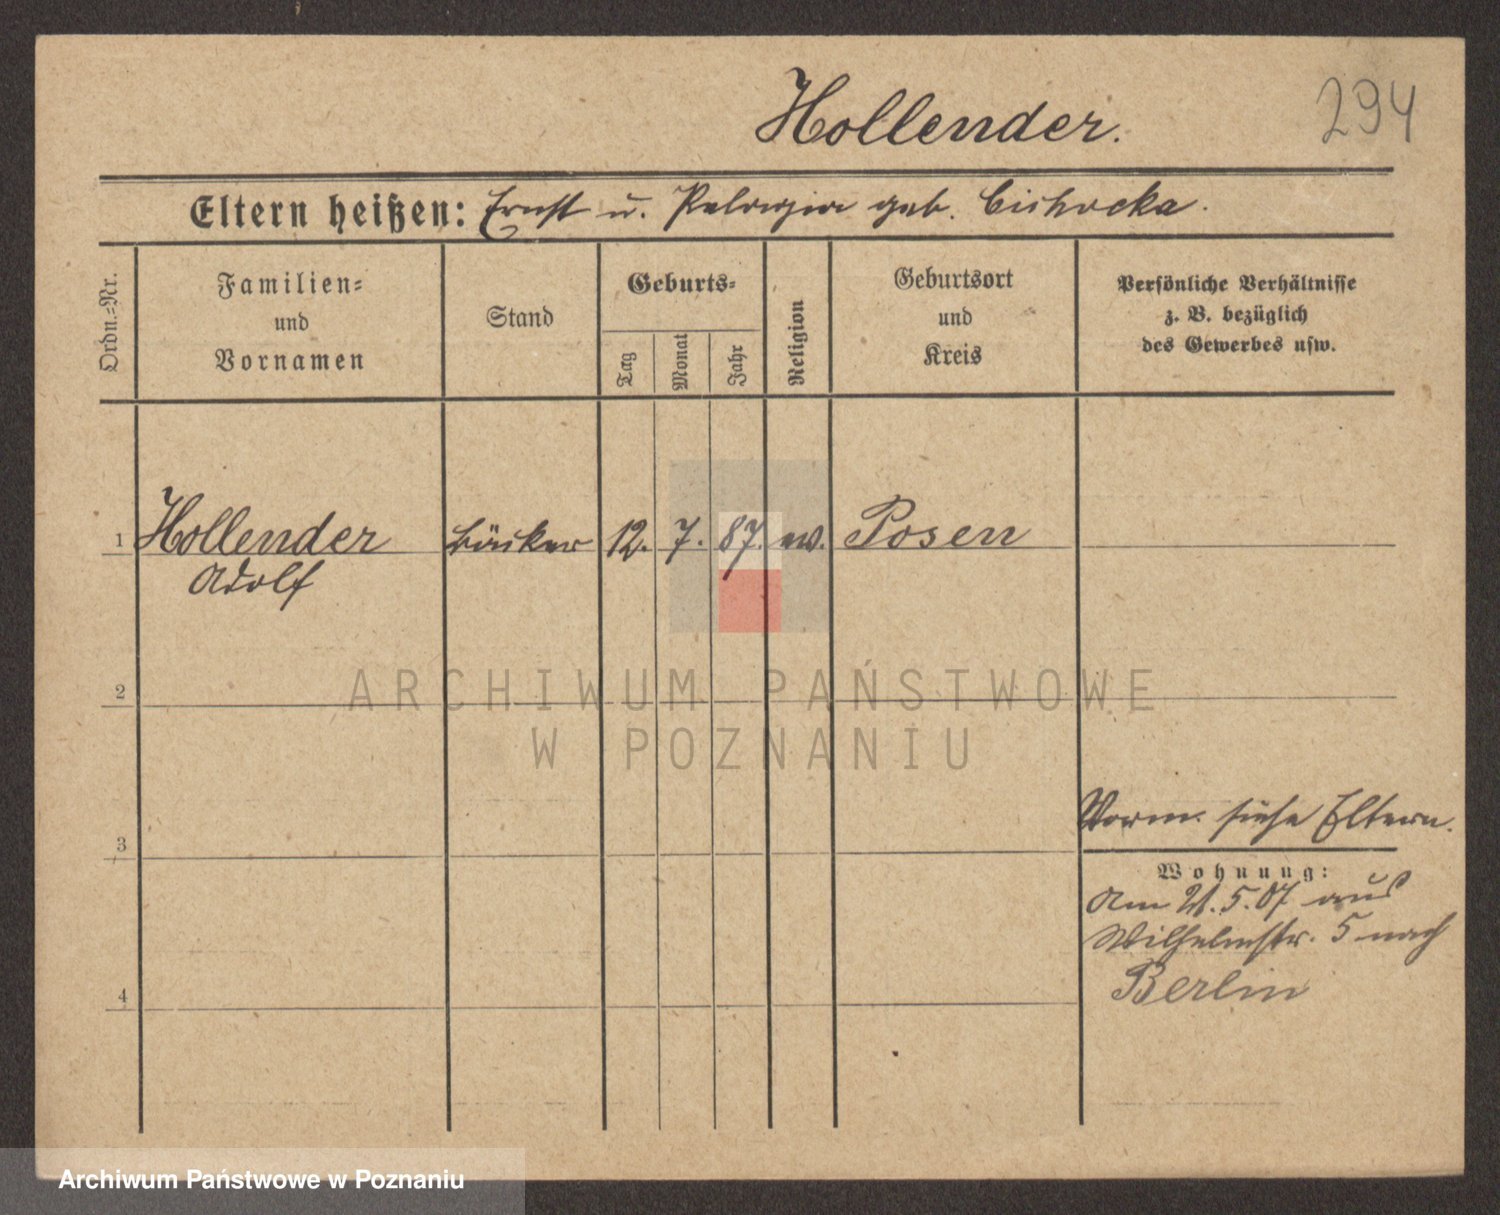 Hollender.
294
Eltern heißen: Ernst u. Pelagia geb. Cichocka.
Ordn.-Nr.
Familien-
und
Vornamen
Stand
Geburts-
Tag
Monat
Jahr
Religion
Geburtsort
und
Kreis
Persönliche Verhältnisse
z. B. bezüglich
des Gewerbes usw.
1 Hollender Bäcker 12. 7. 87. ev. Posen
Adolf
ARCHIWUM PAŃSTWOWE
W POZNANIU
2
3
4
Vorm. siehe Eltern.
Wohnung:
Am 21.5.07 aus
Wilhelmstr. 5 nach
Berlin
Archiwum Państwowe w Poznaniu